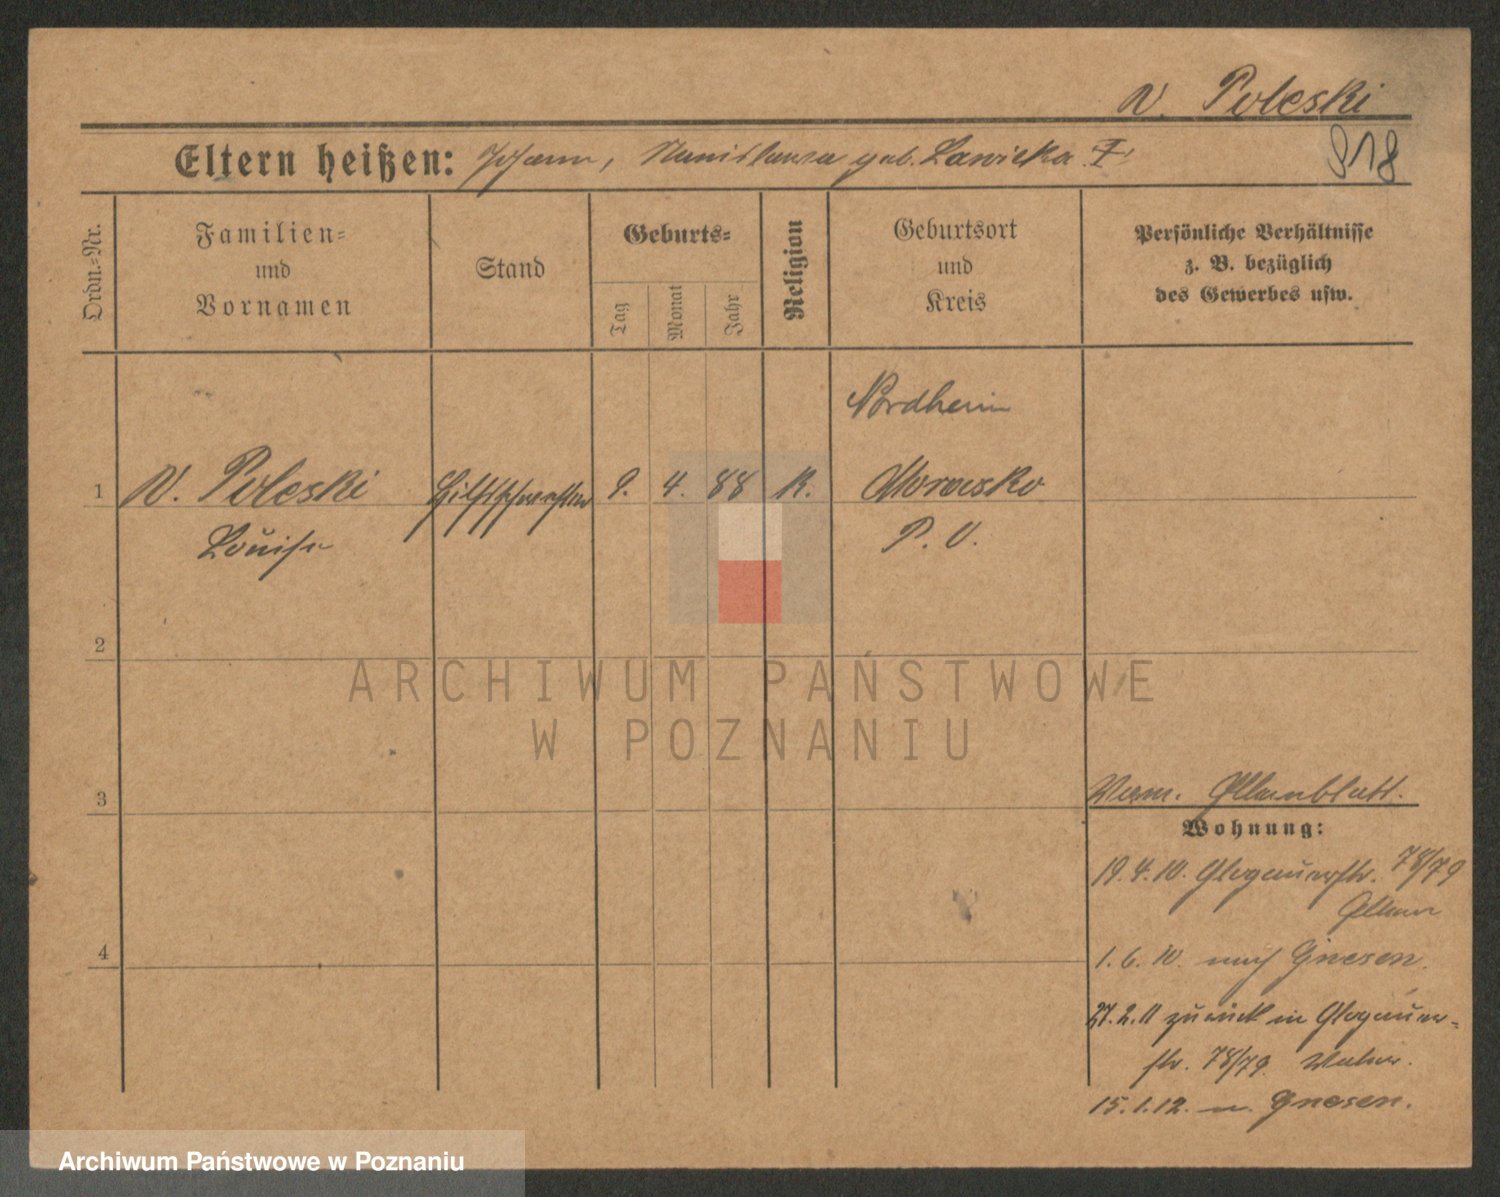 v. Poleski
Eltern heißen: Johann, Stanislawa geb. Lawicka †
918
Ordn.-Nr.
Familien-
und
Vornamen
Stand
Geburts-
Tag
Monat
Jahr
Religion
Geburtsort
und
Kreis
Persönliche Verhältnisse
z. B. bezüglich
des Gewerbes usw.
Nordheim
1 v. Poleski Hilfsschwester 9. 4. 88 K. Morasko
Louise P. O.
2
3
4
Verm. Elternblatt.
Wohnung:
19.4.10. Glogauerstr. 78/79
Eltern
1.6.10. nach Gnesen.
27.2.11 zurück in Glogauer-
str. 78/79 Vater.
15.1.12. n. Gnesen.
ARCHIWUM PAŃSTWOWE
W POZNANIU
Archiwum Państwowe w Poznaniu